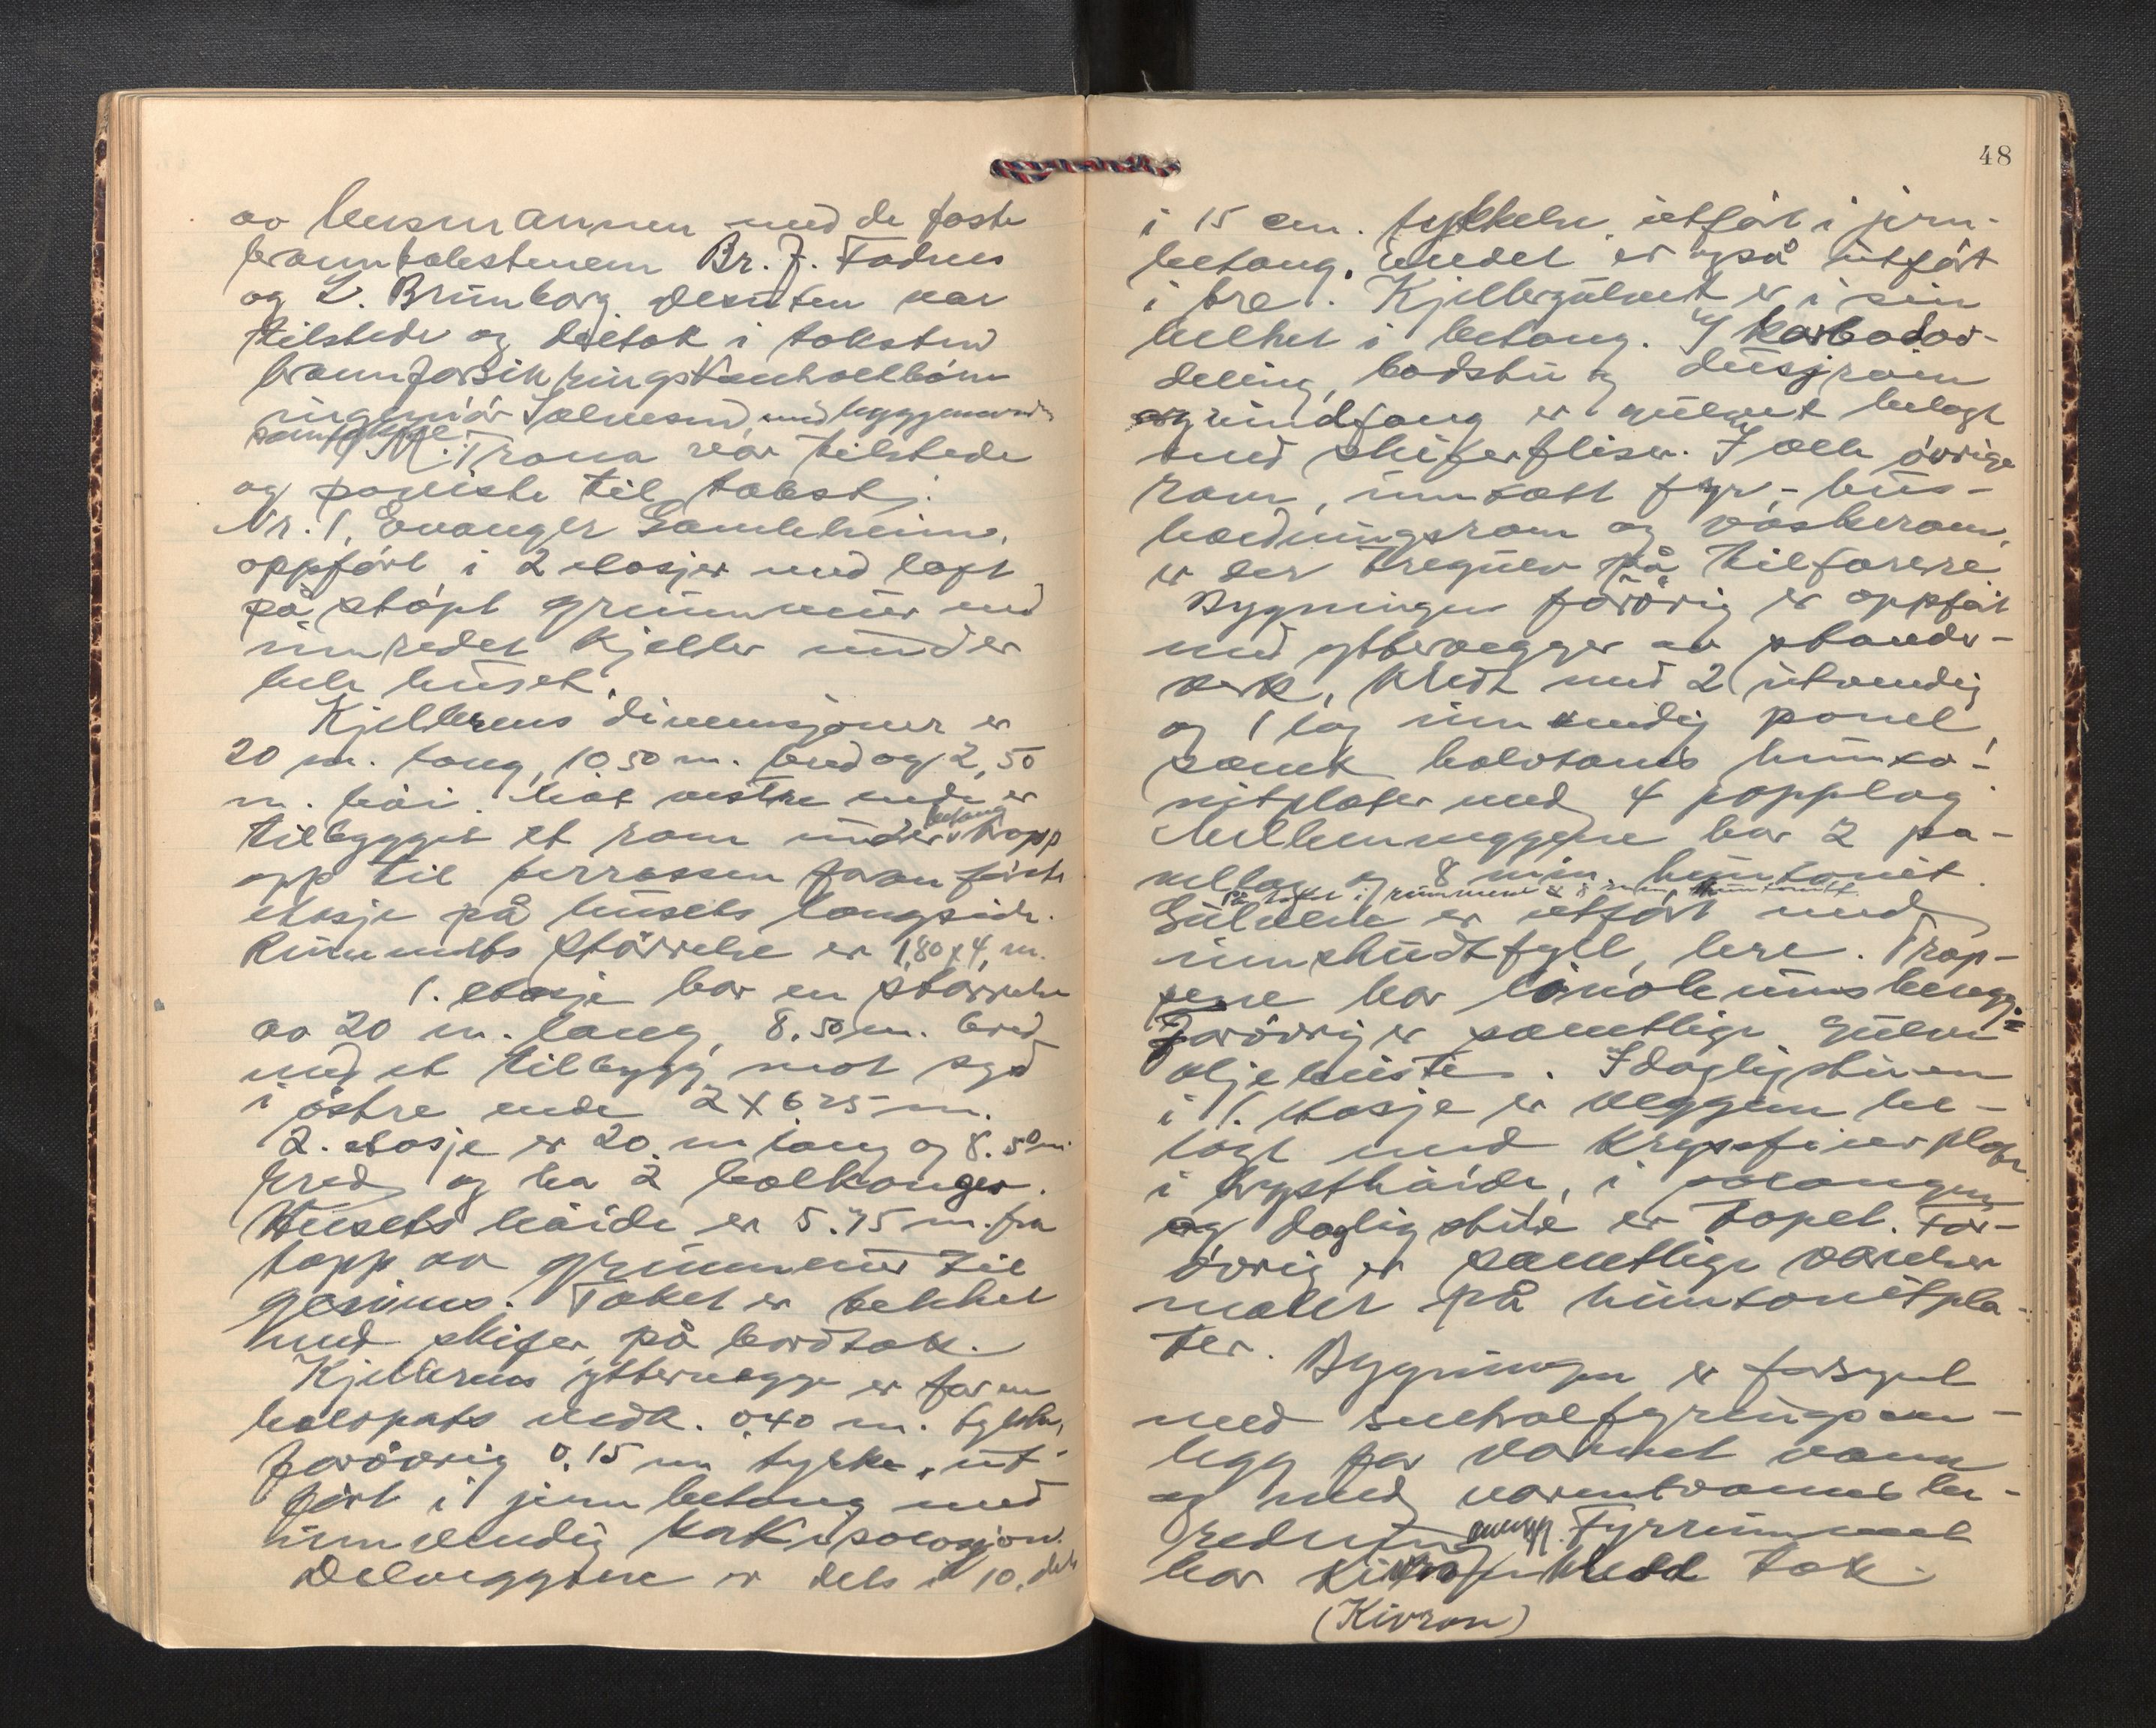 av lensmannen med de faste
branntakstmenn Br. J. Fadnes
og L. Brunborg. Desuten var
tilstede og deltok i taksten
brannforsikrings
ingeniør Salvesen, med byggmester
M. Trona var tilstede
og påviste til takst:
Nr. 1, Evanger Gamleheim,
oppført i 2 etasjer med loft
på støpt grunnmur med
innredet kjeller under
hele huset.
Kjellerens dimensjoner er
20 m. lang, 10.50 m. bred og 2,50
m. høi. Mot vestre ende er
tilbygget et rom under betong trapp
opp til terrassen foran første
etasje på husets langside.
Rummets størrelse er 1,80 x 4, m.
1. etasje har en størrelse
av 20 m. lang, 8.50 m. bred
med et tilbygg mot syd
i østre ende 2 x 6.25 m.
2. etasje er 20 m lang og 8.50 m.
bred og ha 2 balkonger.
Husets høide er 5.75 m. fra
topp av grunnmur til
gesims. Taket er tekket
med skifer på bordtak.
Kjellerens yttervegge er for en
halvpart vedk. 0.40 m. tykke,
forøvrig 0.15 m tykke, ut-
ført i jernbetong med
innvendig korkisolasjon.
Delveggene er dels i 10, dels
48
i 15 cm. tykkelse, utført i jern-
betong. Endel er også utført
i tre. Kjellergulvet er i sin
helhet i betong. I karbadav-
deling, badstu og dusjrom
og vindfang er gulvet belagt
med skiferfliser. I alle øvrige
rom, unntatt fyr-, hus-
holdningsrom og vaskerom,
er der tregulv på tilfarere.
Bygningen forøvrig er oppført
med yttervegger av stender-
verk, kledt med 2 utvendig
og 1 lag innvendig panel,
samt halvtoms hunto-
nitplater med 4 papplag.
Mellemveggene har 2 pa-
nellag og 8 mm. huntonit.
På taket i rummene er 8 mm. huntonitt.
Gulvene er utført med
innskuddfyll, lere. Trap-
pene har linoleumsbelegg.
Forøvrig er samtlige gulve
oljehuste. I dagligstuen
i 1. etasje er veggene be-
lagt med kryssfinerplater
i brysthøide, i salongen
og dagligstue er tapet. For-
øvrig er samtlige værelser
malt på huntonitpla-
ter. Bygningen er forsynt
med sentralfyringsan-
legg for varmt vann
og med varmtvannsbe-
redning Fyrrummet
har kledd tak.
(Kivron)